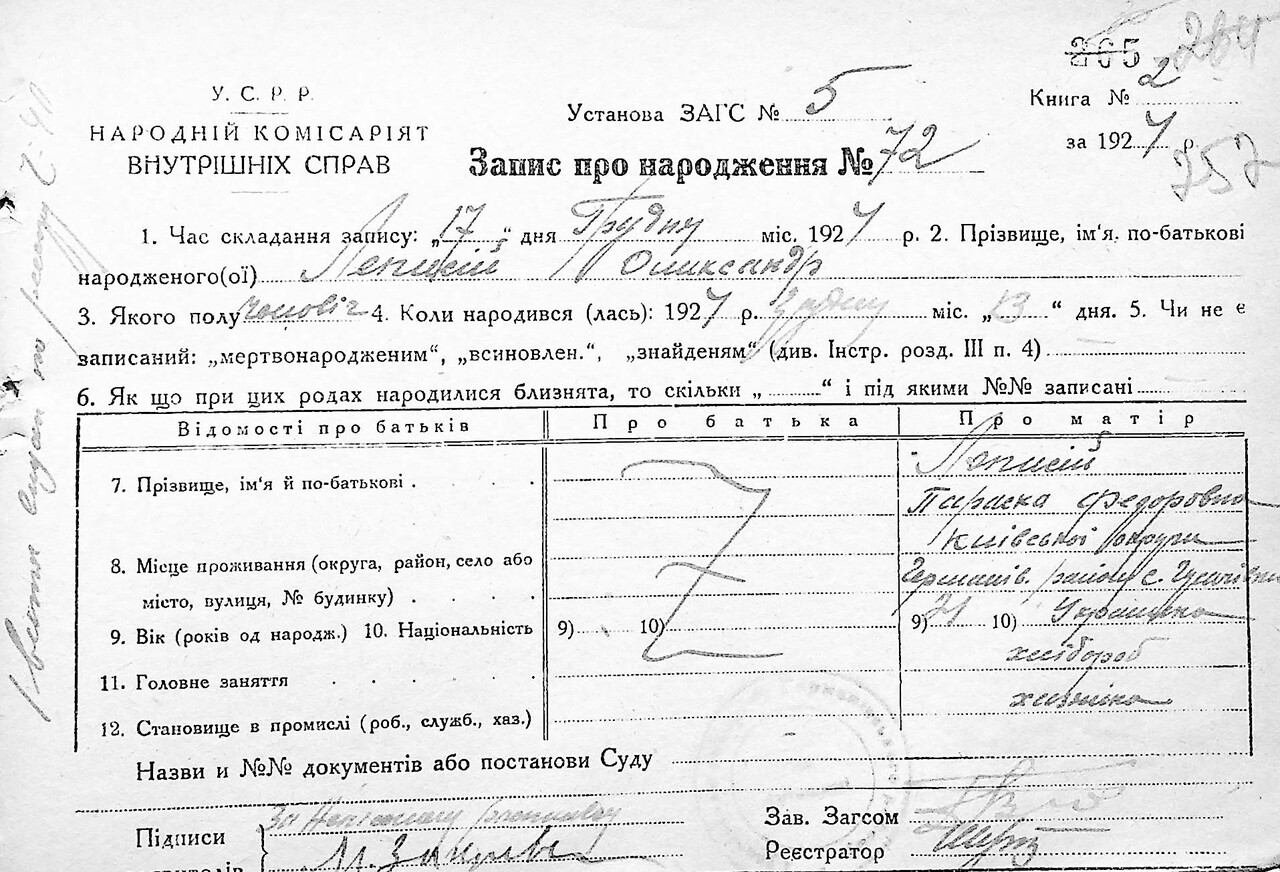 265 264
У. С. Р. Р.
НАРОДНІЙ КОМІСАРІЯТ
ВНУТРІШНІХ СПРАВ
Установа ЗАГС № 5
Книга № 2
за 1927 р.
257
Запис про народження № 72
1. Час складання запису: „17“ дня Грудня міс. 1927 р. 2. Прізвище, ім'я, по-батькові
народженого(ої) Леписій Олександр
3. Якого полу чоловіч 4. Коли народився (лась): 1927 р. Грудня міс. „13“ дня. 5. Чи не є
записаний: „мертвонародженим“, „всиновлен.“, „знайденям“ (див. Інстр. розд. III п. 4)
6. Як що при цих родах народилися близнята, то скільки „ “ і під якими №№ записані
Відомості про батьків Про батька Про матір
7. Прізвище, ім'я й по-батькові Леписій
Параска Федоровна
8. Місце проживання (округа, район, село або Київської округи
місто, вулиця, № будинку) Германів. район с.
9. Вік (років од народж.) 10. Національність 9) 10) 9) 21 10) Українка
11. Головне заняття хлібороб
12. Становище в промислі (роб., служб., хаз.) хазяйка
Назви и №№ документів або постанови Суду
Підписи За неписьмену
Зав. Загсом
Реєстратор